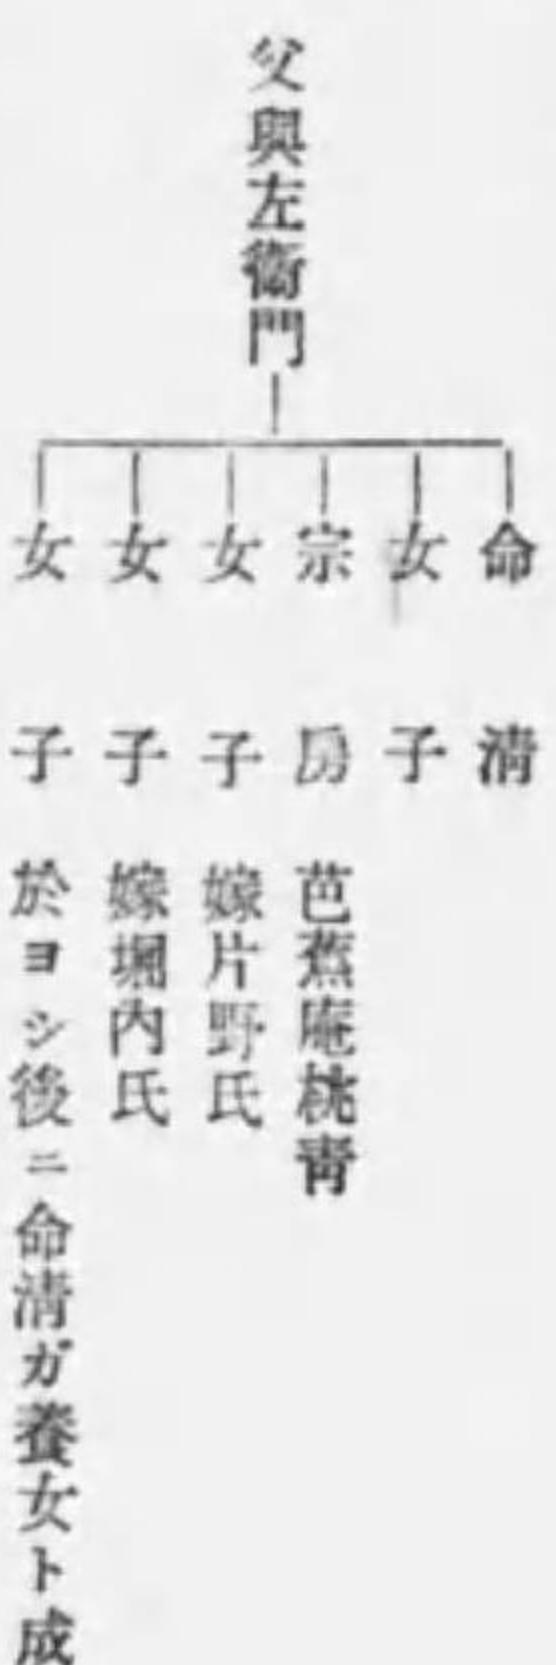 父與左衞門
命清
女子
宗房 芭蕉庵桃青
女子 嫁片野氏
女子 嫁堀內氏
女子 於ヨシ後ニ命清ガ養女ト成